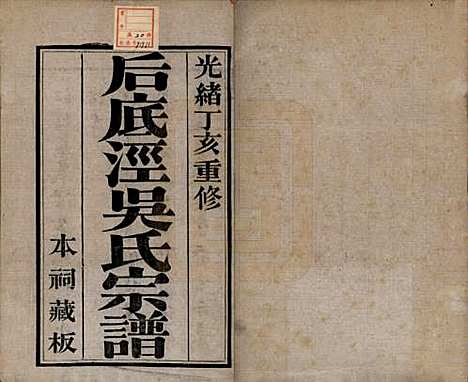 光緒丁亥重修
后底涇吳氏宗譜
本祠藏板